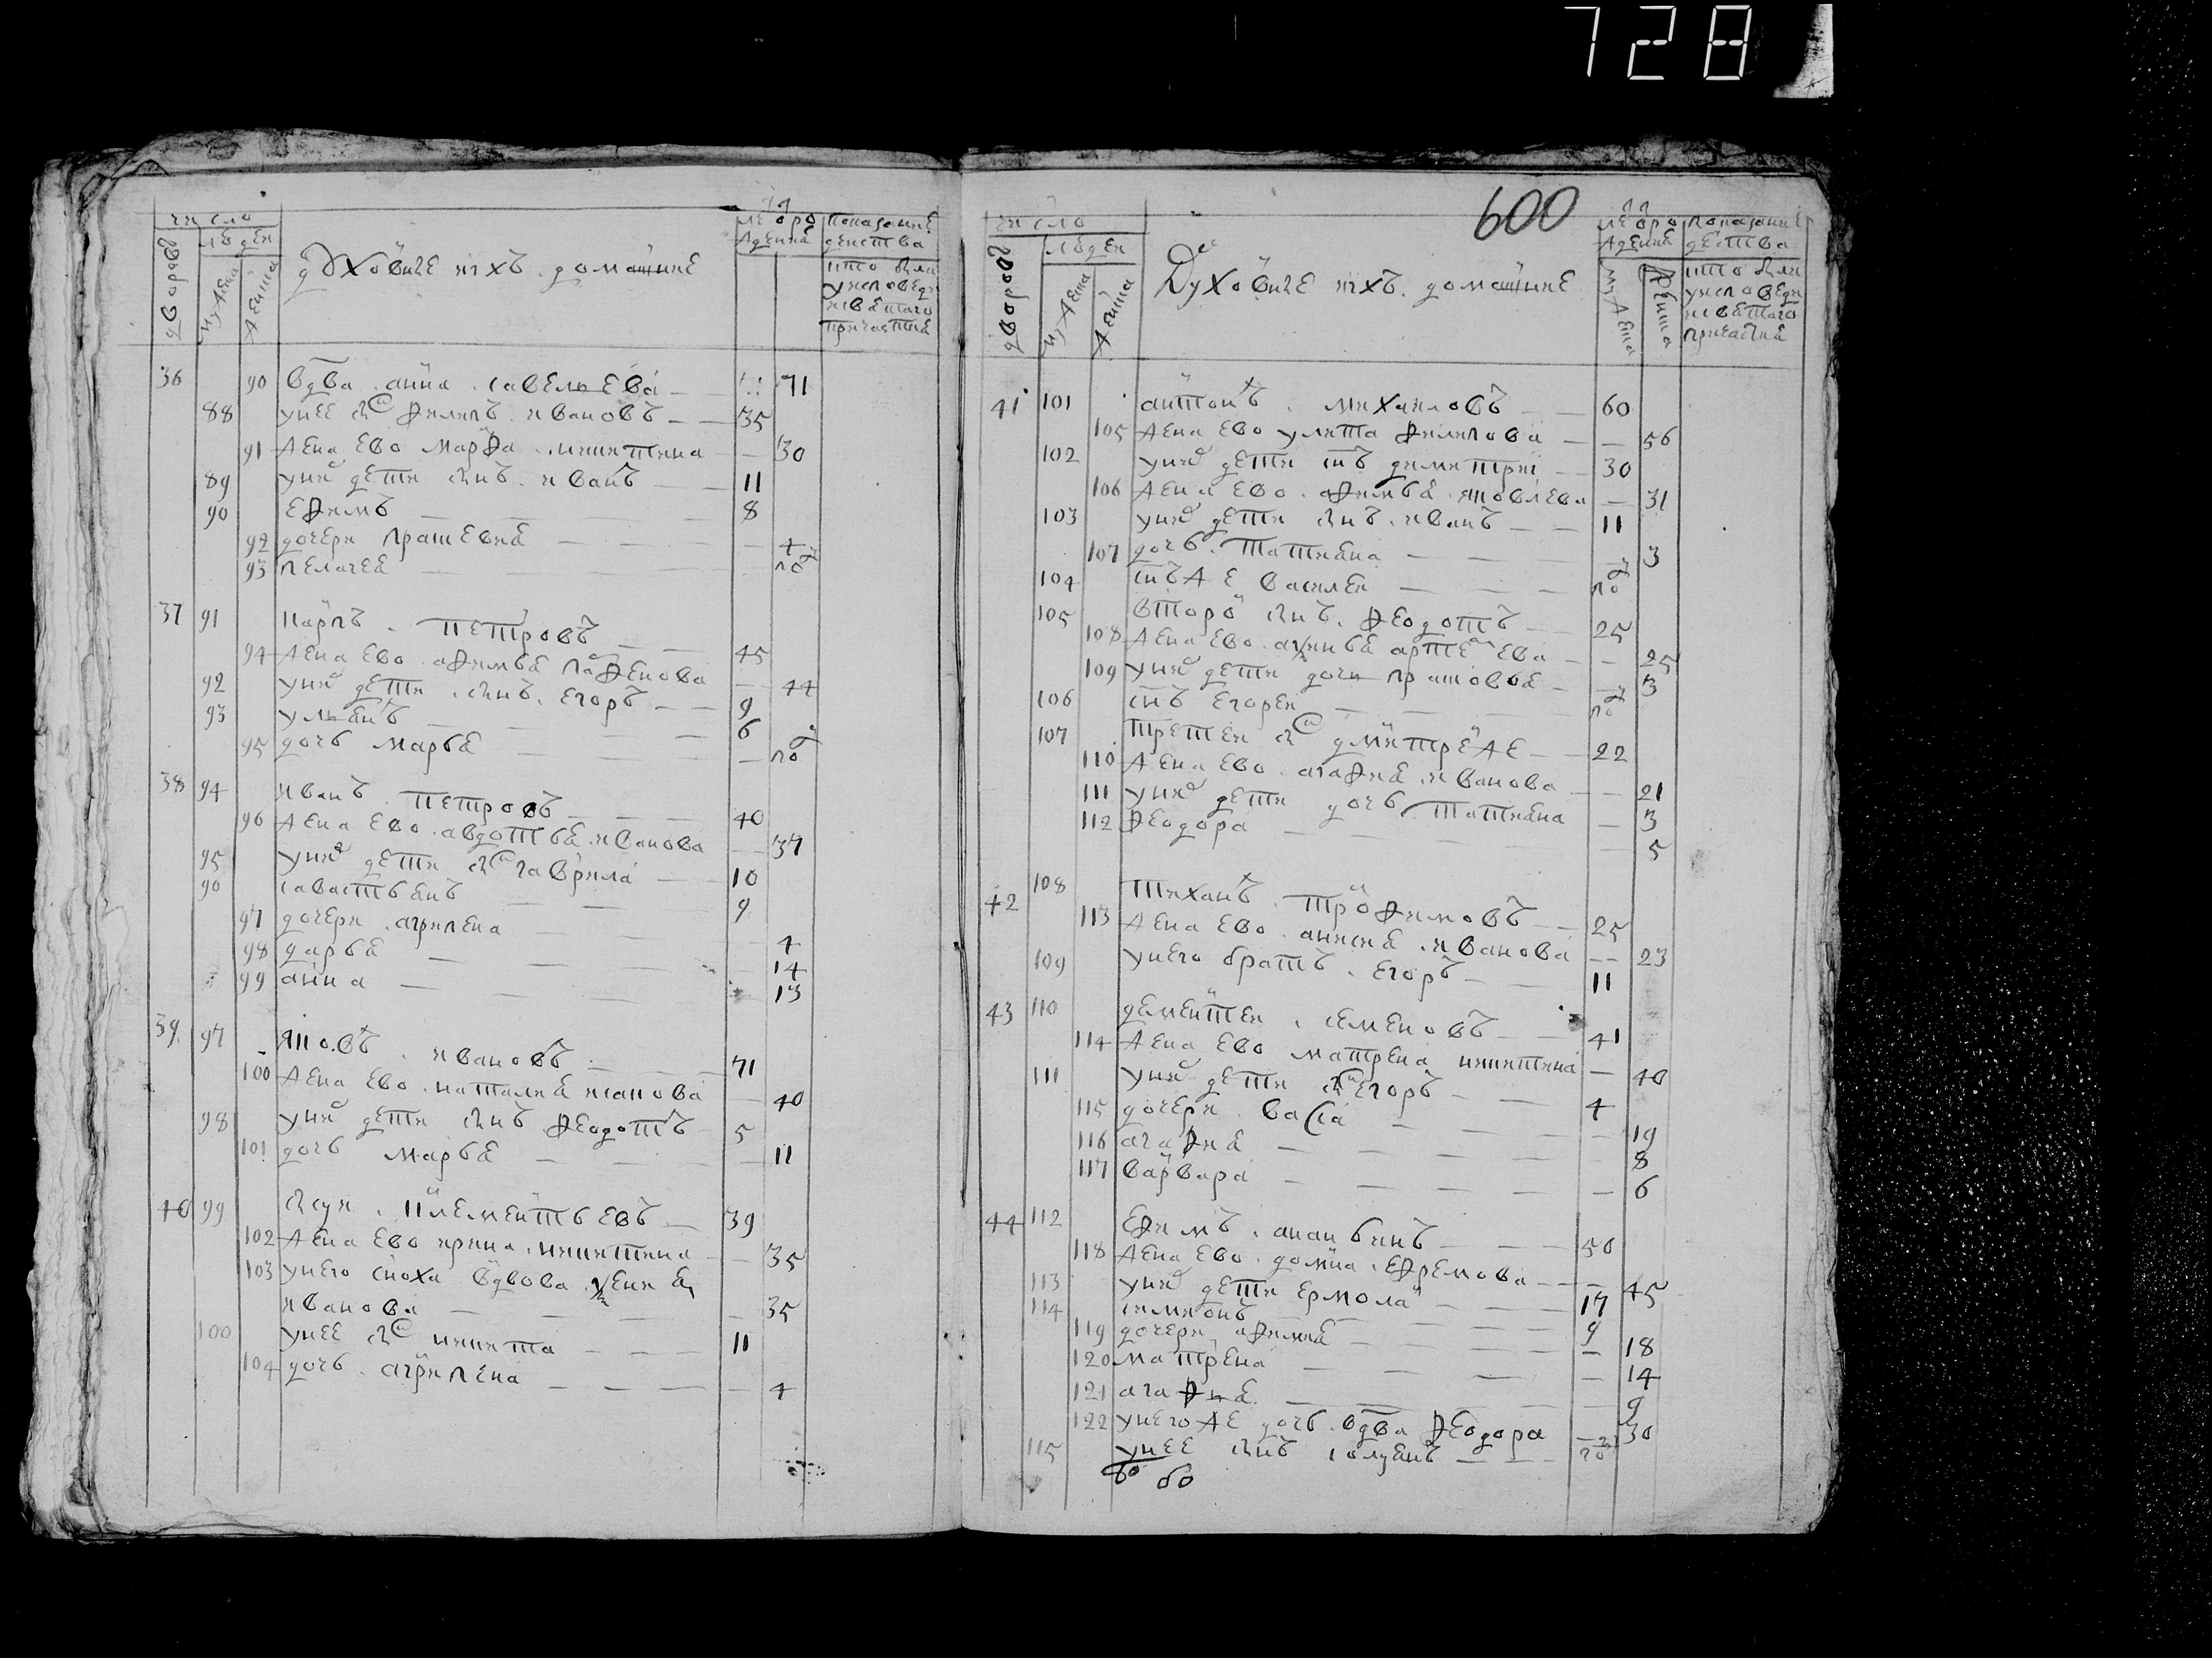 728
600
число
людеи
дворовъ
мужеска
женска
духовные ихъ домашние
лѣ о рожденiя
показание
деиства
кто былъ
у исповеди
и святаго
причастия
36 90 вдва анна савельева — 71
88 у нее сн филипъ ивановъ — — 35
91 жена ево марфа никитина — 30
89 у них дети снъ иванъ — — 11
90 ефимъ — — — 8
92 дочери прасковия — — — 4
93 пелагея — — — по
37 91 карпъ петровъ — — 45
94 жена ево афимья парфенова — 44
92 у них дети снъ егоръ — — 9
93 ульянъ — — — 6
95 дочь марья — — — по
38 94 иванъ петровъ — — 40
96 жена ево авдотья иванова — 37
95 у них дети сн гаврила — — 10
96 савастьянъ — — — 9
97 дочери агрипена — — 4
98 дарья — — — 14
99 анна — — — 13
39 97 яковъ ивановъ — — 71
100 жена ево наталия исакова — 40
98 у них дети снъ феодотъ 5
101 дочь марья — — — 11
40 99 сысуи климентьевъ — 39
102 жена ево ирина никитина — 35
103 у него сноха вдова
иванова — — 35
100 у нее сн никита — — — 11
104 дочь агрипена — — — 4
число
людеи
дворовъ
мужеска
женска
Духовные ихъ домашние
лѣ о рожденiя
мужеска
женска
показание
деиства
кто былъ
у исповеди
и святаго
причастия
41 101 антонъ михаиловъ — — 60
105 жена ево улита филипова — — 56
102 у них дети снъ димитреи — 30
106 жена ево афимья яковлева — 31
103 у них дети снъ иванъ — — 11
107 дочь татияна — — — 3
104 снъ же василеи — — — по
105 вторы снъ феодотъ — 25
108 жена ево аксинья артемева — — 25
109 у них дети дочи прасковья — 3
106 снъ егореи — — — по
107 третеи сн дмитре же — — 22
110 жена ево агафия иванова — — 21
111 у них дети дочь татияна — 3
112 феодора — — — 5
42 108 тиханъ трофимовъ — — 25
113 жена ево анисия иванова — — 23
109 у него братъ егоръ — — 11
43 110 дементеи семеновъ — — 41
114 жена ево матрена никитина — 40
111 у них дети сн егоръ — — 4
115 дочери васса — — — 19
116 агафия — — — 8
117 варвара — — — 6
44 112 ефимъ ананьинъ — — — 50
118 жена ево домна ефремова — — 45
113 у них дети ермола — — — 17
114 симионъ — — — 9
119 дочери афимия — — 18
120 матрена — — — 14
121 агафия — — — 9
122 у него же дочь вдва феодора — 30
115 у нее снъ — — — по